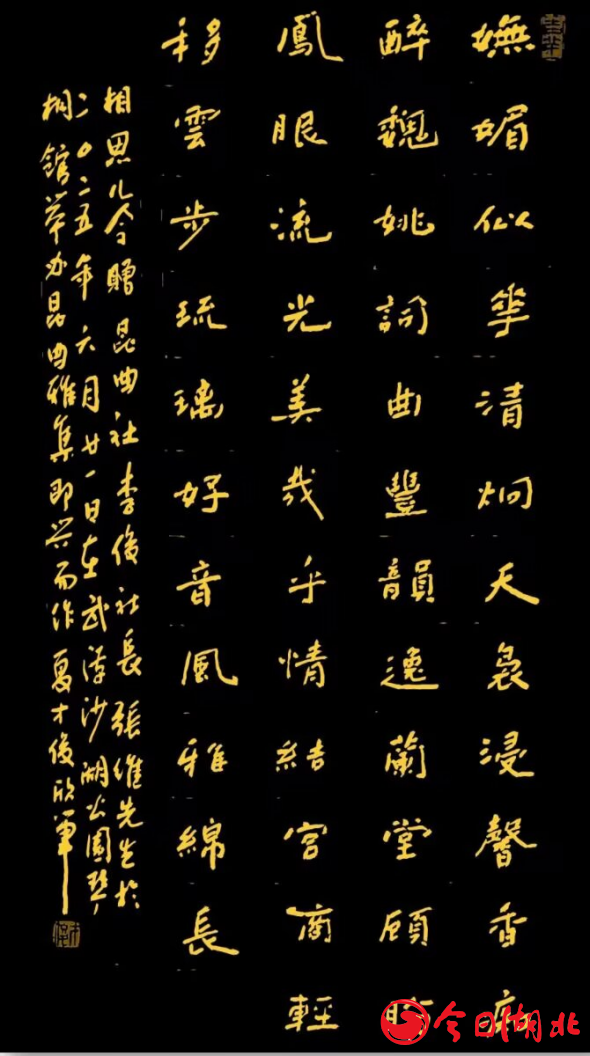 嫵媚似華清炯天裊浸馨香
醉魏姚詞曲豐韻逸蘭堂顧盼
鳳眼流光美哉乎情結宮商輕
移雲步琉璃好音風雅綿長
相思儿令赠昆曲社李俊社長張維先生於
二〇二五年六月廿一日在武漢沙湖公園琴
桐館举办昆曲雅集即兴而作夏才俊欣筆
今日湖北